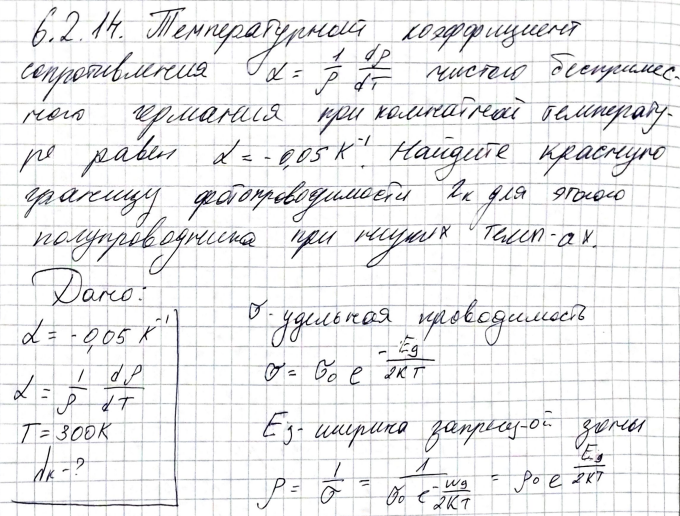 6.2.14. Температурный коэффициент
сопротивления α = 1/ρ dρ/dT чистого беспримес-
ного германия при комнатной температу-
ре равен α = -0,05 K⁻¹. Найдите красную
границу фотопроводимости λк для этого
полупроводника при низких темп-ах.
Дано:
α = -0,05 K⁻¹
α = 1/ρ dρ/dT
T = 300K
λк - ?
σ - удельная проводимость
σ = σ₀ e^(-Eg/2KT)
Eg - ширина запрещ-ой зоны
ρ = 1/σ = 1/(σ₀ e^(-wg/2KT)) = ρ₀ e^(Eg/2KT)